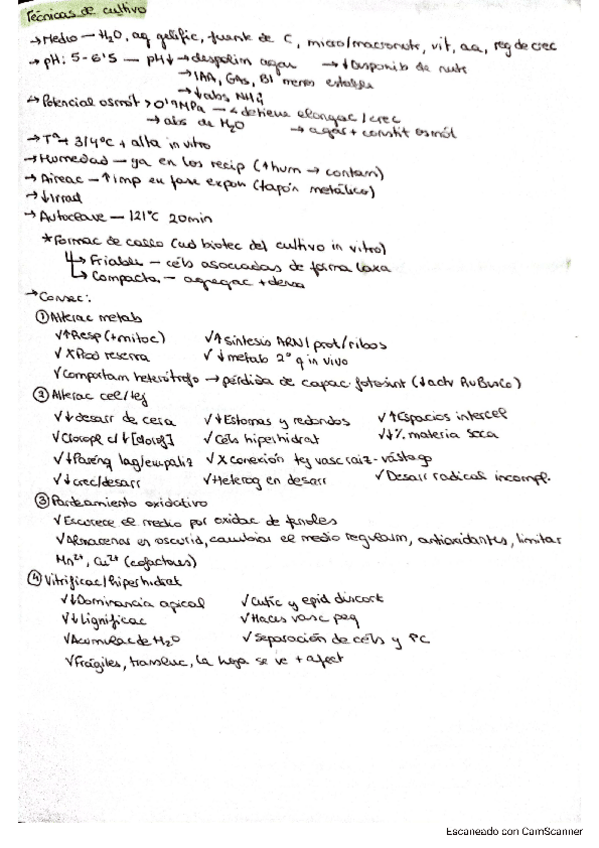 Técnicas de cultivo
→ Medio — H₂O, ag gelific, fuente de C, micro/macronutr, vit, aa, reg de crec
→ pH: 5-6'5 — pH↓ → despolim agar → ↓Disponib de nutr
→ IAA, GAs, B1 menos estable
→ ↓abs NH₄⁺
→ Potencial osmót > 0'9MPa — detiene elongac/crec
→ abs de H₂O → agar + constit osmól
→ Tª → 3/4°C + alta in vitro
→ Humedad — ya en los recip (↑hum → contam)
→ Aireac — ↑imp en fase expon (tapón metálico)
→ ↓Irrad
→ Autoclave — 121°C 20min
*Formac de callo (ud biotec del cultivo in vitro)
↳ Friable — céls asociadas de forma laxa
↳ Compacta — agregac + densa
→ Consec:
① Alterac metab
✓↑Resp (+mitoc) ✓↑síntesis ARN/prot/ribos
✓XProd reserva ✓↓metab 2º q in vivo
✓Comportam heterótrofo → pérdida de capac. fotosint (↓actv RuBisCo)
② Alterac cel/tej
✓↓desarr de cera ✓↓Estomas y redondos ✓↑Espacios intercel
✓Cloropl c/↓[clorof] ✓Céls hiperhidrat ✓↓% materia seca
✓↓Parénq lag/empaliz ✓X conexión tej vasc raiz-vástago
✓↓crec/desarr ✓Heterog en desarr ✓Desarr radical incompl.
③ Pardeamiento oxidativo
✓Escurece el medio por oxidac de fenoles
✓Almacenar en oscurid, cambiar el medio regularm, antioxidantes, limitar
Mn²⁺, Cu²⁺ (cofactores)
④ Vitrificac/hiperhidrat
✓↓Dominancia apical ✓Cutíc y epid discont
✓↓Lignificac ✓Haces vasc peq
✓Acomulac de H₂O ✓Separación de céls y PC
✓Frágiles, transluc, la hoja se ve + afect
Escaneado con CamScanner